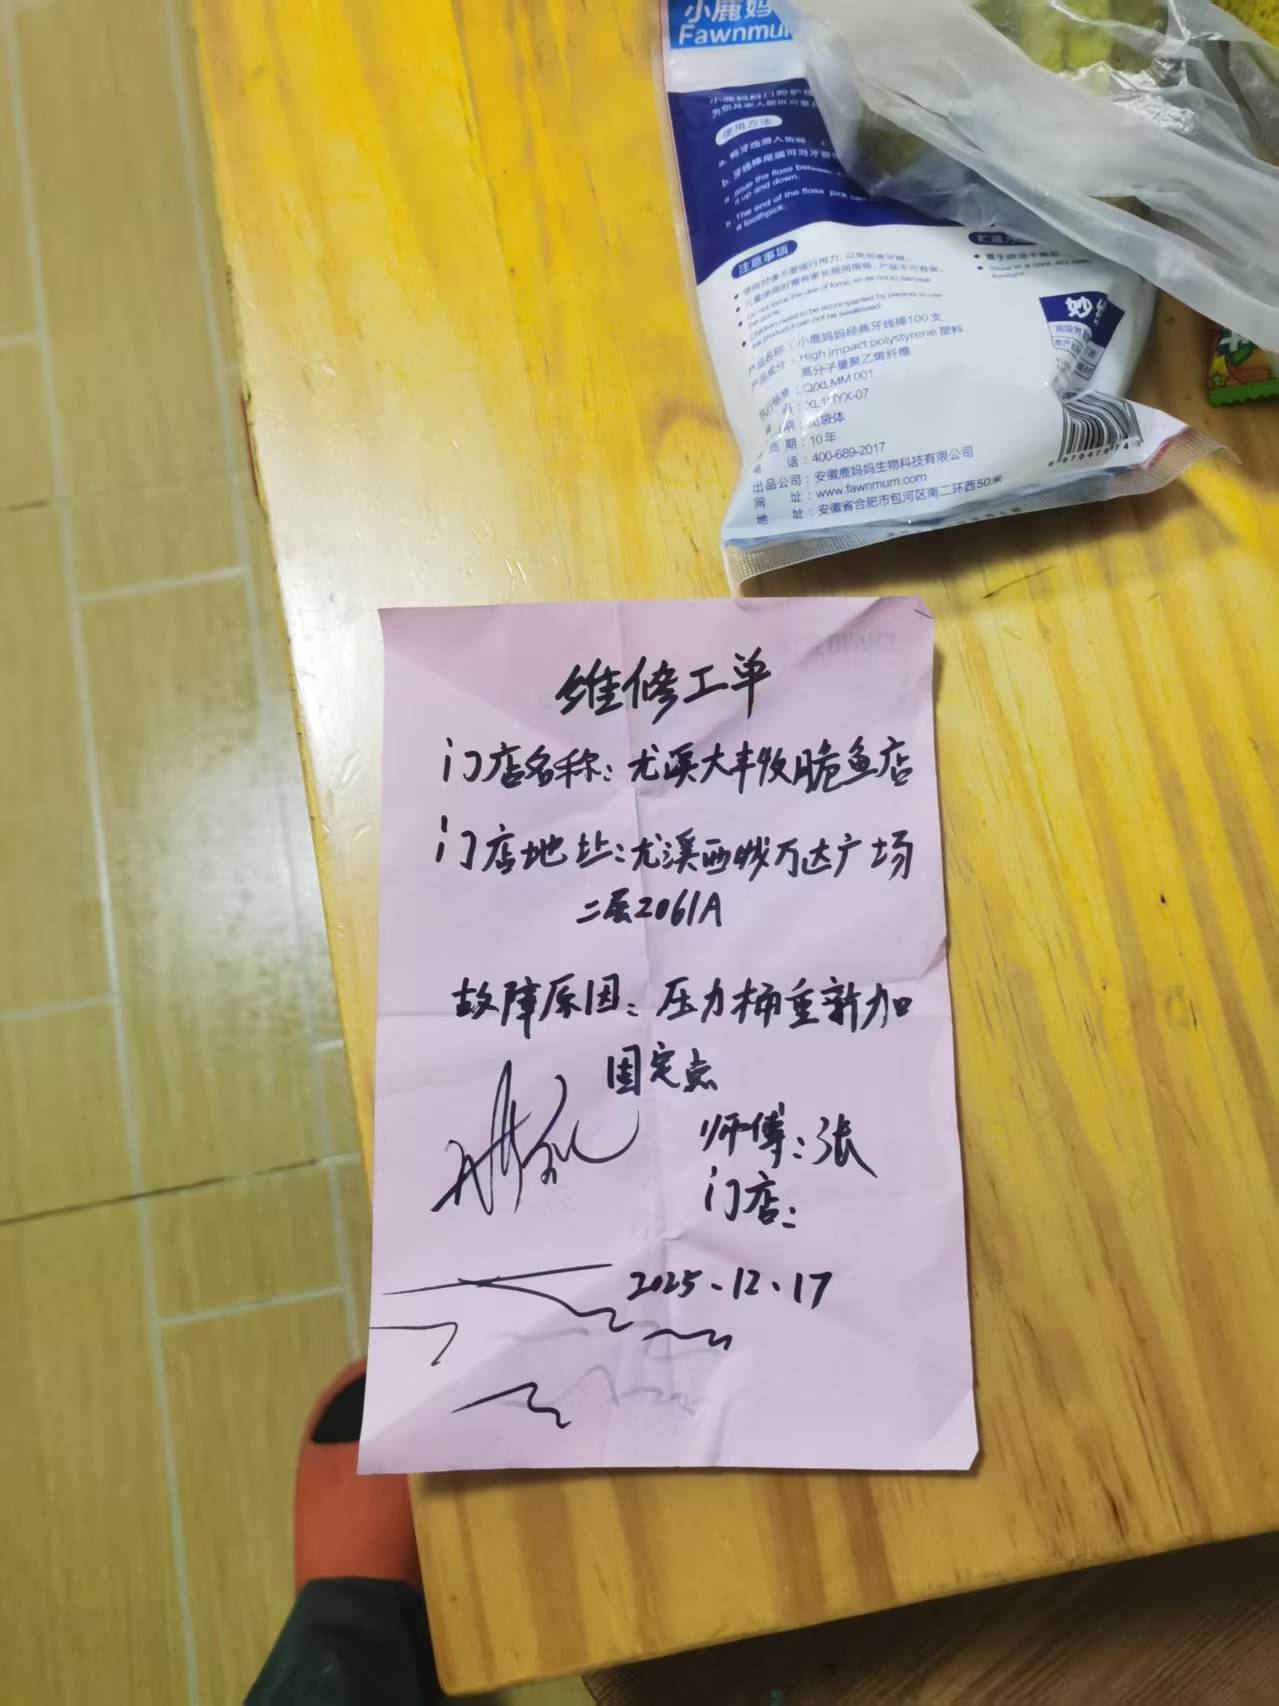 小鹿妈
Fawnmum
使用方法
a. 将牙线滑入齿缝
b. 牙线棒尾端可当牙
it up and down.
b. The end of the floss pick can
a toothpick.
注意事项
使用时请不要强行用力，以免伤害牙龈。
儿童使用时需有家长陪同指导，产品不可吞食。
Do not force the use of force, so as not to damage
the gums.
Children need to be accompanied by parents to use
the product,it can not be swallowed.
置于阴凉干燥处
Store in a cool, dry
妙
产品名称：小鹿妈妈经典牙线棒100支
产品成分：High impact polystyrene 塑料，
高分子量聚乙烯纤维
执行标准：Q/XLMM 001
期：10年
电 话：400-689-2017
出品公司：安徽鹿妈妈生物科技有限公司
网 址：www.fawnmum.com
地 址：安徽省合肥市包河区南二环西50米
维修工单
门店名称：尤溪大丰收脆鱼店
门店地址：尤溪西城万达广场
二层2061A
故障原因：压力桶重新加
固定点
师傅：张
门店：
2025.12.17